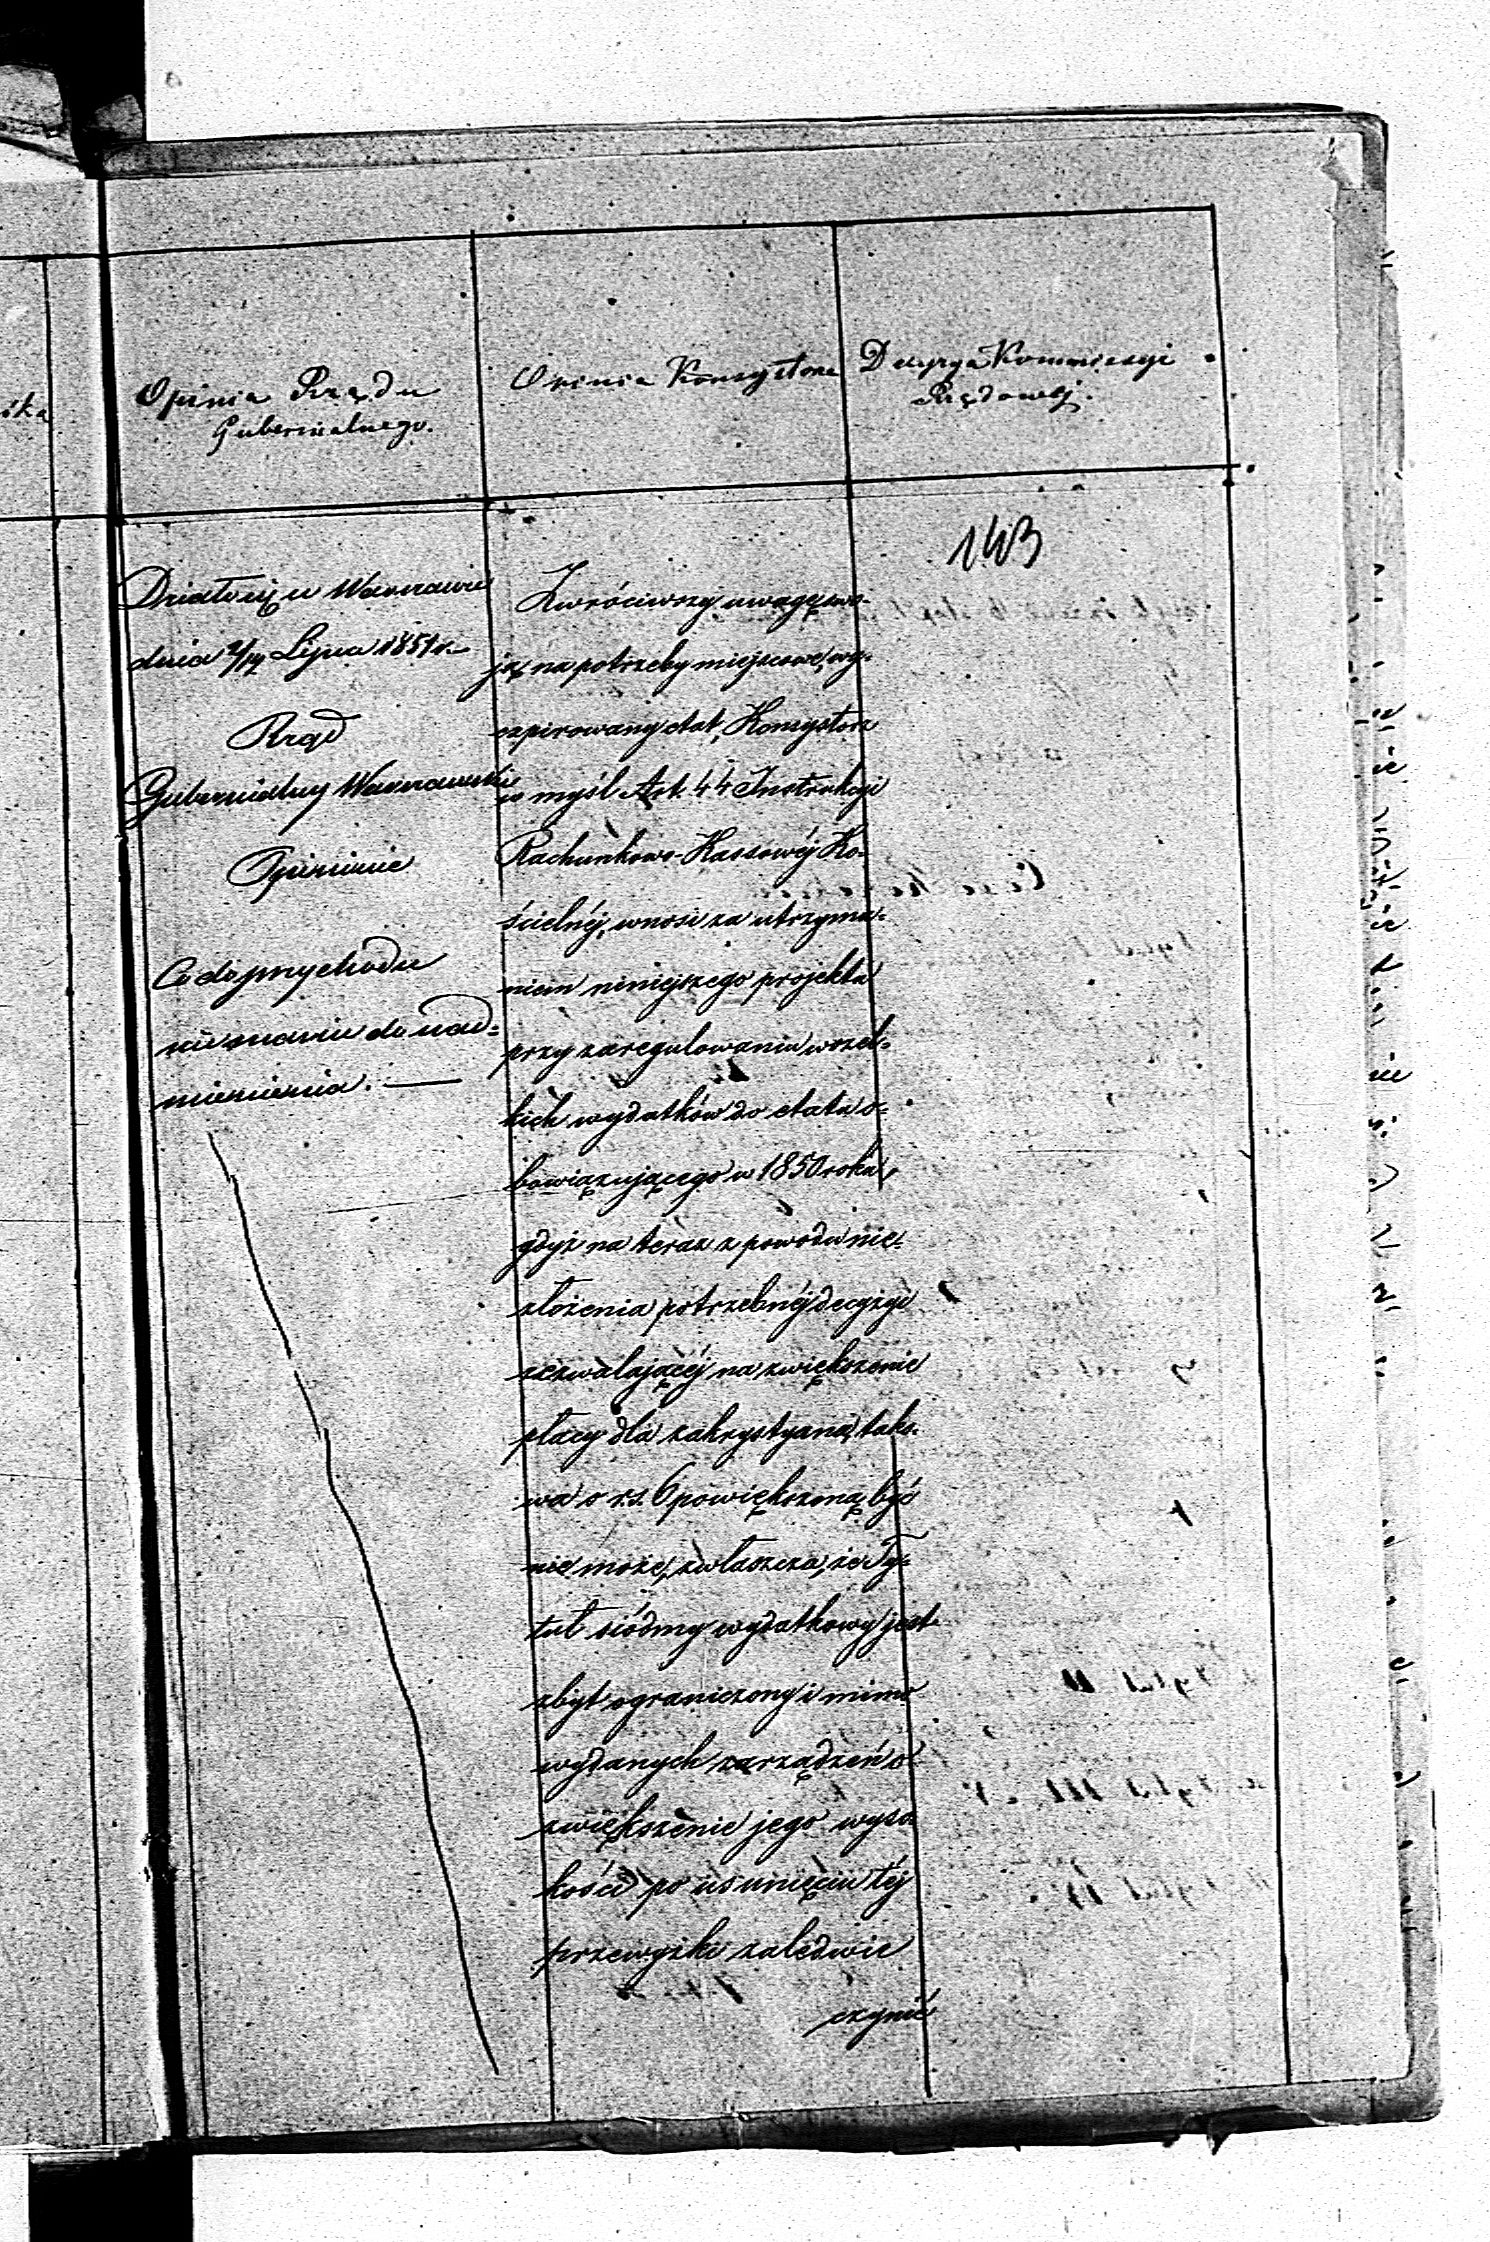 ika
Opinia Rządu
Gubernialnego.
Opinia Konsystorza
Decyzya Kommissyi
Rządowej.
143
Działo się w Warszawie
dnia 2/14 Lipca 1851 r.
Rząd
Gubernialny Warszawski
Opiniuie
Co do przychodu
nie ma nic do nad=
mienienia. —
Zwróciwszy uwagę swo-
ją na potrzeby miejscowe, wy-
szpirowany etat, Konsystorz
w myśl Art. 44 Instrukcji
Rachunkowo-Kassowéj Ko-
ścielnéj, wnosi za utrzyma-
niem niniejszego projektu
przy zaregulowaniu wszel-
kich wydatków do etatu o-
bowiązującego w 1850 roku,
gdyż na teraz z powodu nie-
złożenia potrzebnéj decyzyi
zezwalającéj na zwiększenie
płacy dla zakrystyana, tako-
wa o r.s. 6 powiększoną być
nie może, zwłaszcza, że Ty-
tuł siódmy wydatkowy jest
zbyt ograniczony i mimo
wydanych zarządzeń o
zwiększenie jego wyso-
kość po usunięciu téj
przewyżki zaledwie
czynić